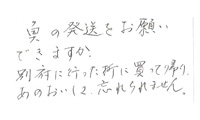 魚の発送をお願い
できますか。
別府に行った折に買って帰り、
あのおいしさ、忘れられません。